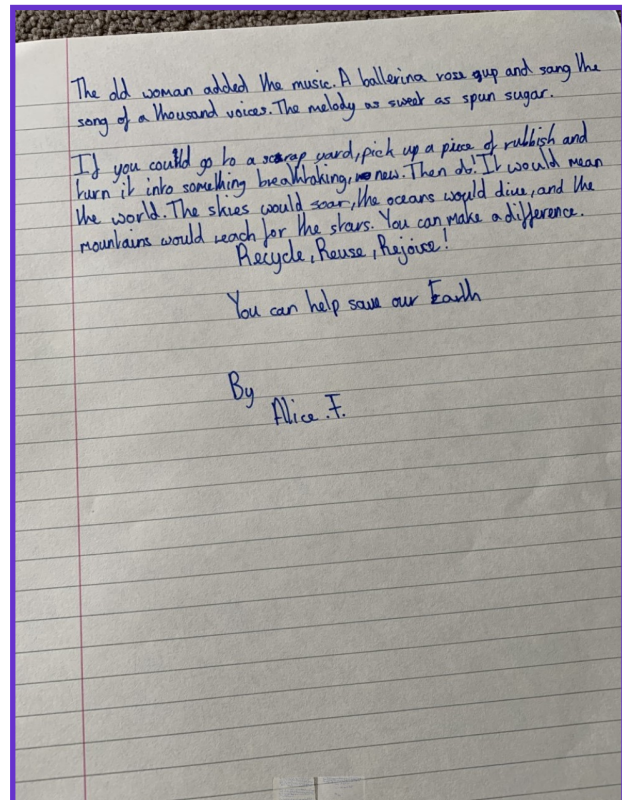 The old woman added the music. A ballerina rose up and sang the
song of a thousand voices. The melody as sweet as spun sugar.
If you could go to a scrap yard, pick up a piece of rubbish and
turn it into something breathtaking, new. Then do! It would mean
the world. The skies would soar, the oceans would dive, and the
mountains would reach for the stars. You can make a difference.
Recycle, Reuse, Rejoice!
You can help save our Earth
By
Alice .F.